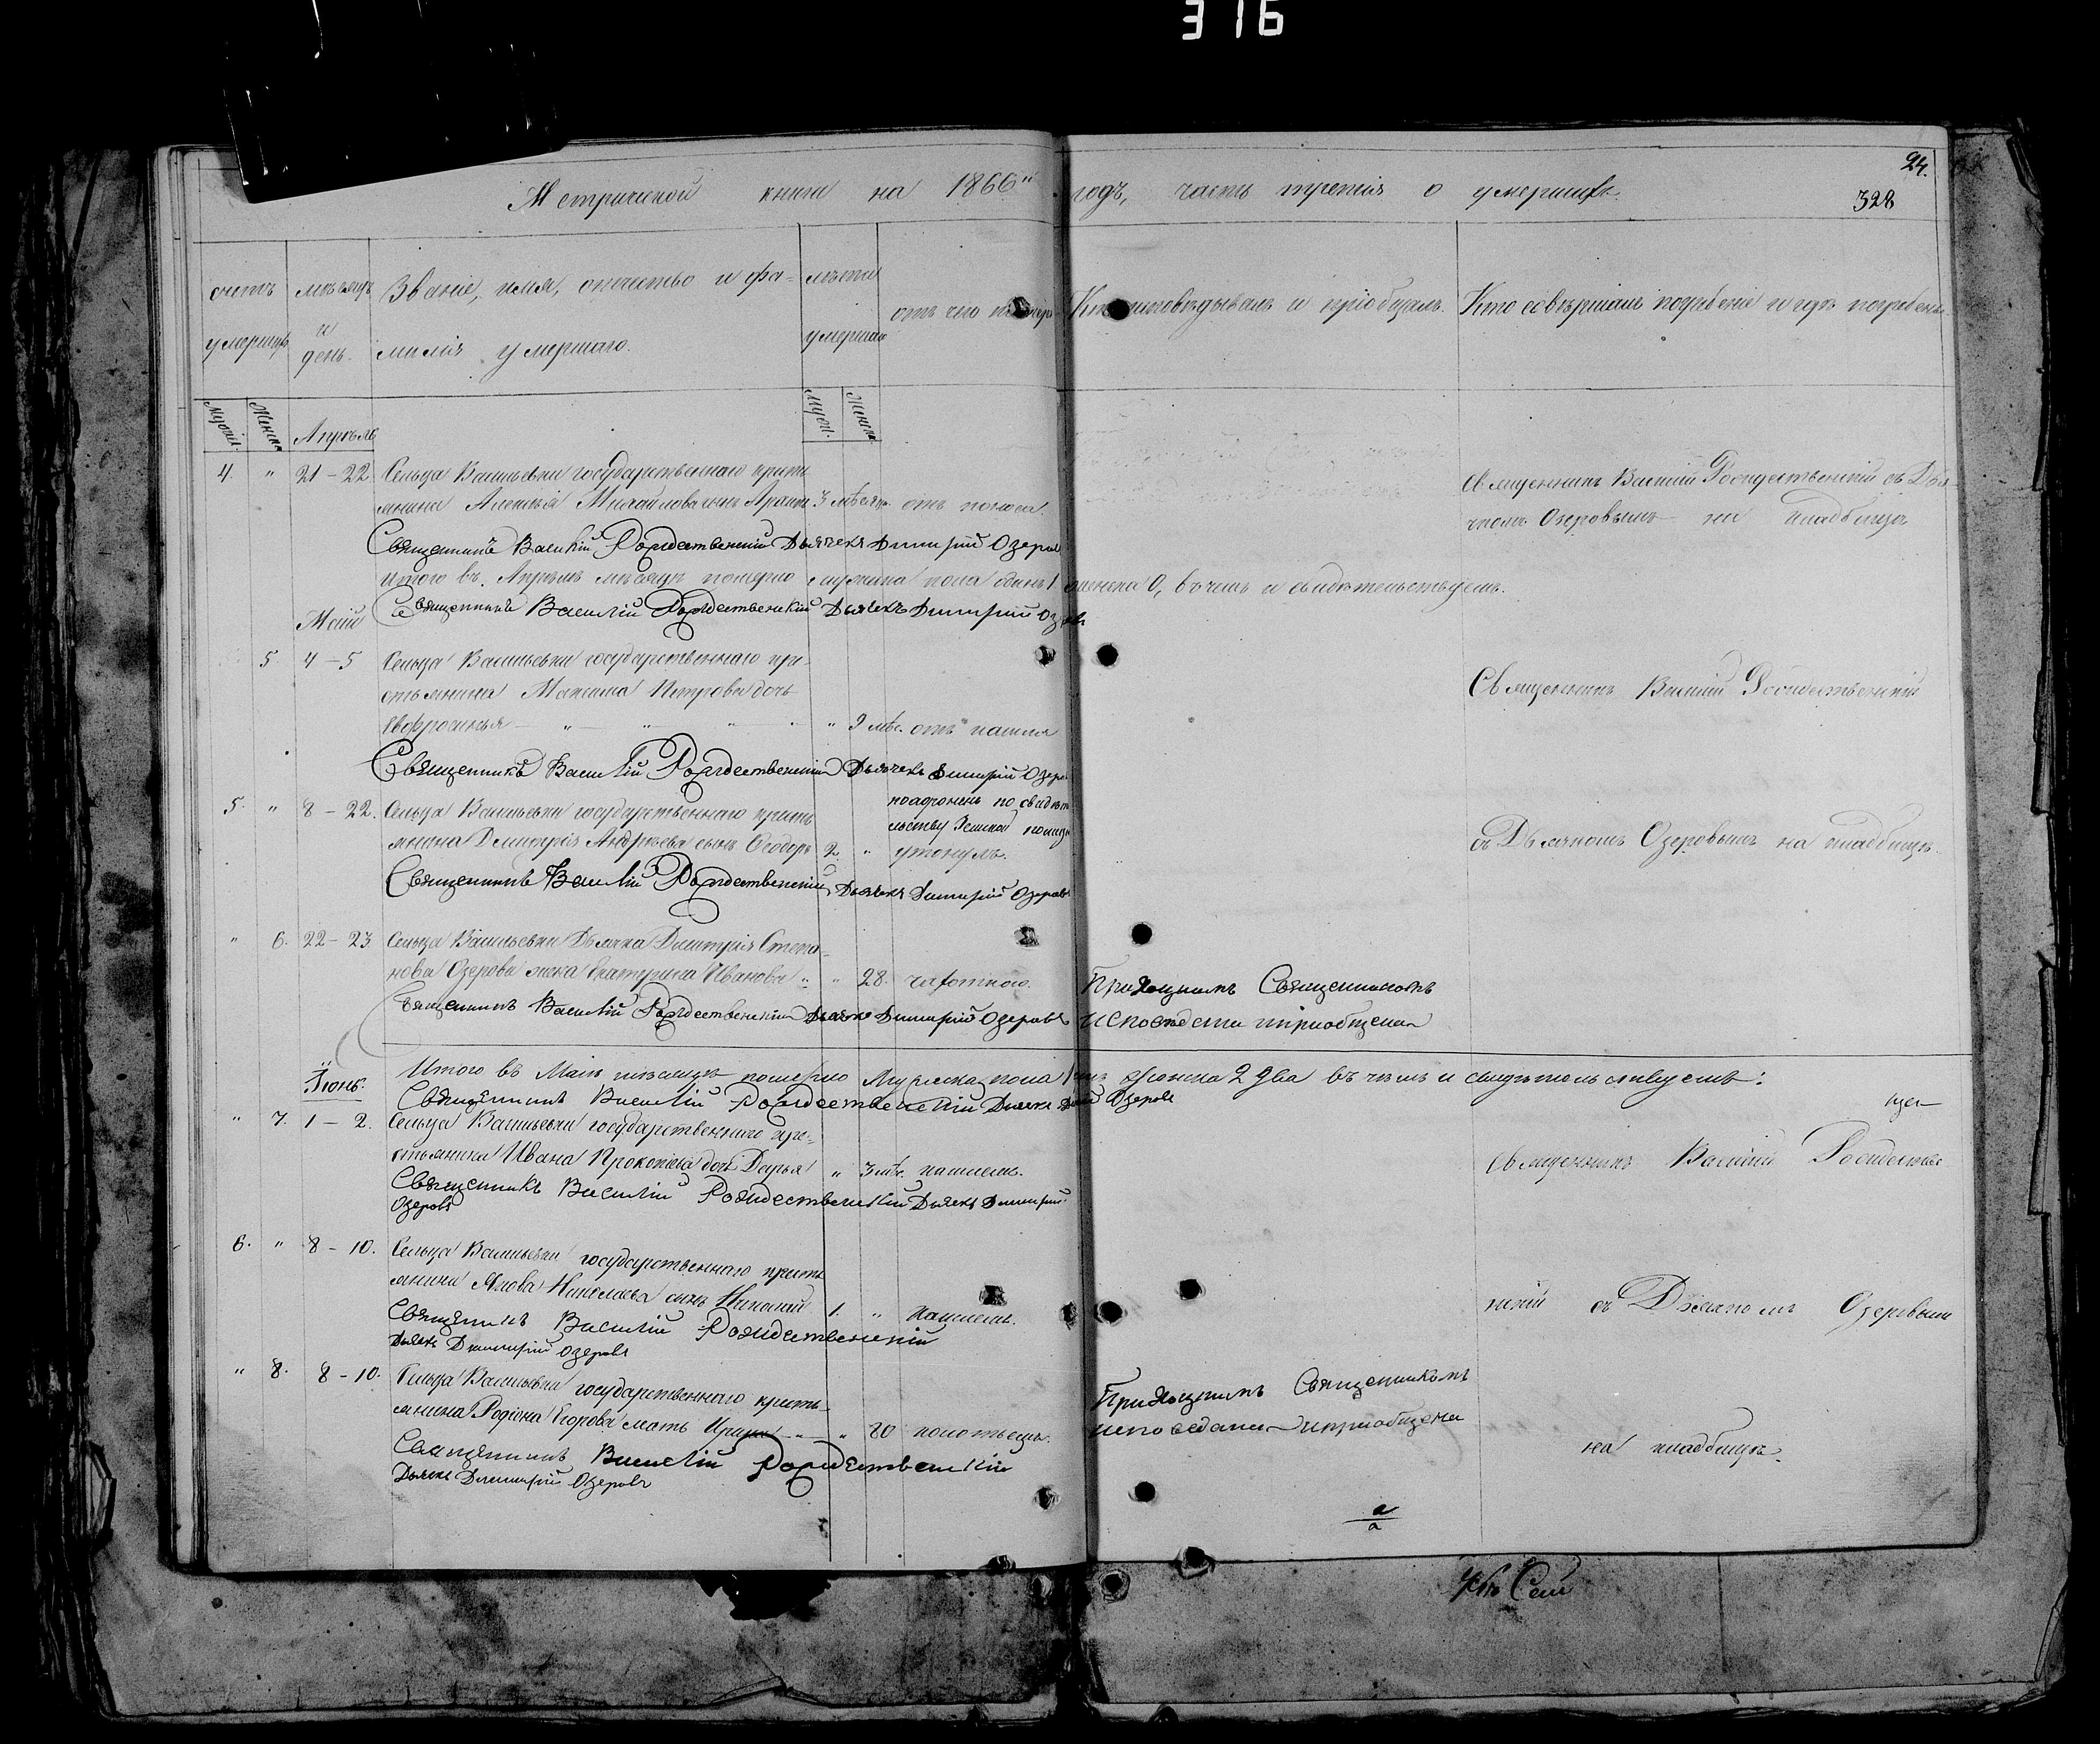 316
24.
328
Метрической книги на 1866 годъ, часть третія о умершихъ.
счетъ умершихъ
мѣсяцъ и день.
Званіе, имя, отчество и фамилія умершаго.
лѣта умершаго
отъ чего
Кто исповѣдывалъ и пріобщалъ.
Кто совершалъ погребеніе и гдѣ погребены
Мужеск.
Женска
Апрѣль
Мужск.
Женска
4. " 21-22 Сельца Васильевки государственнаго кресть
янина Алексѣя Михайлова сынъ 3 мѣсяц. отъ поноса.
Священникъ Василій Рождественскій съ Дья
чкомъ Озеровымъ на кладбищѣ
Священникъ Василій Рождественскій Дьячекъ Димитрій Озеровъ
Итого въ Апрѣлѣ мѣсяцѣ померло мужеска пола одинъ 1 женска 0, въ чемъ и свидѣтельствуемъ.
Священникъ Василій Рождественскій Дьячекъ Димитрій Озеровъ
Май
5 4-5 Сельца Васильевки государственнаго кре-
стьянина Максима Петрова дочь
Евфросинья " " " " " 9 мѣс. отъ кашля
Священникъ Василій Рождественскій
Священникъ Василій Рождественскій Дьячекъ Димитрій Озеровъ
5. " 8-22. Сельца Васильевки государственнаго кресть
янина Дмитрія Андреева сынъ Ѳеодоръ 2 "
похороненъ по свидѣте
льству Земской полиціи
утонулъ.
съ Дьячкомъ Озеровымъ на кладбищѣ.
Священникъ Василій Рождественскій Дьячекъ Димитрій Озеровъ
" 6. 22-23 Сельца Васильевки Дьячка Дмитрія Степа-
нова Озерова жена Екатерина Иванова " " 28. чахоткою.
Приходскимъ Священникомъ
исповѣдана и пріобщена
Священникъ Василій Рождественскій Дьячекъ Димитрій Озеровъ
Итого въ Маѣ мѣсяцѣ померло Мужеска пола 1 женска 2 два въ чемъ и свидѣтельствуемъ:
Священникъ Василій Рождественскій Дьячекъ Озеровъ
Іюнь.
" 7. 1-2. Сельца Васильевки государственнаго кре-
стьянина Ивана Прокопіева дочь Дарья " 3 мѣс. кашлемъ.
Священникъ Василій Рождествен
Священникъ Василій Рождественскій Дьячекъ Димитрій
Озеровъ
6. " 8-10. Сельца Васильевки государственнаго кресть
янина Якова Николаева сынъ Николай 1. " кашлемъ.
скій съ Дьячкомъ Озеровымъ
Священникъ Василій Рождественскій
Дьячекъ Димитрій Озеровъ
" 8. 8-10. Сельца Васильевки государственнаго кресть-
янина Родіона Егорова мать Ирина " 80
Приходскимъ Священникомъ
исповѣдана и пріобщена
на кладбищѣ.
Священникъ Василій Рождественскій
Дьячекъ Димитрій Озеровъ